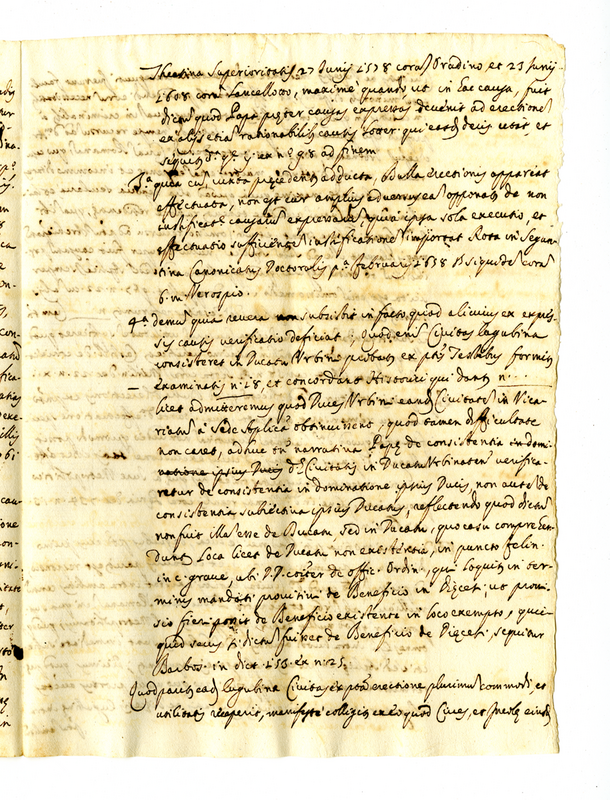 Theatina Superioritatis 27 Junij 1578 coram Oradino et 23 Junij
1608 coram Lancellotto, maxime quando ut in hac causa, fuit
dictum quod Papa propter causas expressas devenit ad erectionem
ex alijs etiam rationabilibus causis
sequitur ex n.º 98 ad finem
3.ª quia cum iuxta adducta, Bulla erectionis appareat
effectuata, non est cur amplius adversus eam opponatur de non
iustificatis causalibus expressis, quia ipsa sola executio, et
effectuatio sufficientem iustificationem importat Rota in Segun-
tina Canonicatus Doctoralis p.ª februarij 1638 coram
Verospio
4.ª demum quia revera non subsistit in facto, quod alicuius ex expres-
sis causis verificatio deficiat; quod enim Civitas Eugubina
consisteret in Ducatu Urbini probatur ex Testibus formiter
examinatis n.º 18, et concordant Historici qui dant n.
licet admitteremus quod Duces Urbini eandem Civitatem in Vica-
riatum à Sede Apostolica obtinuissent, quod tamen difficultate
non caret, adhuc narrativa Papae de consistentia in domi-
natione ipsius Ducis dictae Civitatis in Ducatu Urbinaten verifica-
retur de consistentia in dominatione ipsius Ducis, non autem de
consistentia subiectiva ipsius Ducatus, reflectendo quod dictum
non fuit illam esse de Ducatu, sed in Ducatu, quo casu comprehen-
dunt Loca licet de Ducatu non existentia, in puncto felin.
in c. grave, ubi DD. de offic. Ordin., qui loquitur in ter-
minis mandati provisi de Beneficio in Diocesi, ut provi-
sio fieri possit de Beneficio existente in loco exempto, quic-
quid secus si dictum fuisset de Beneficio de Diocesi, sequitur
Barbos. in dict. 153. ex n.º 25.
Quod pariter eadem Eugubina Civitas ex erectione plurimum commodi, et
utilitatis receperit, manifeste colligitur ex eo quod Cives, et eiusdem